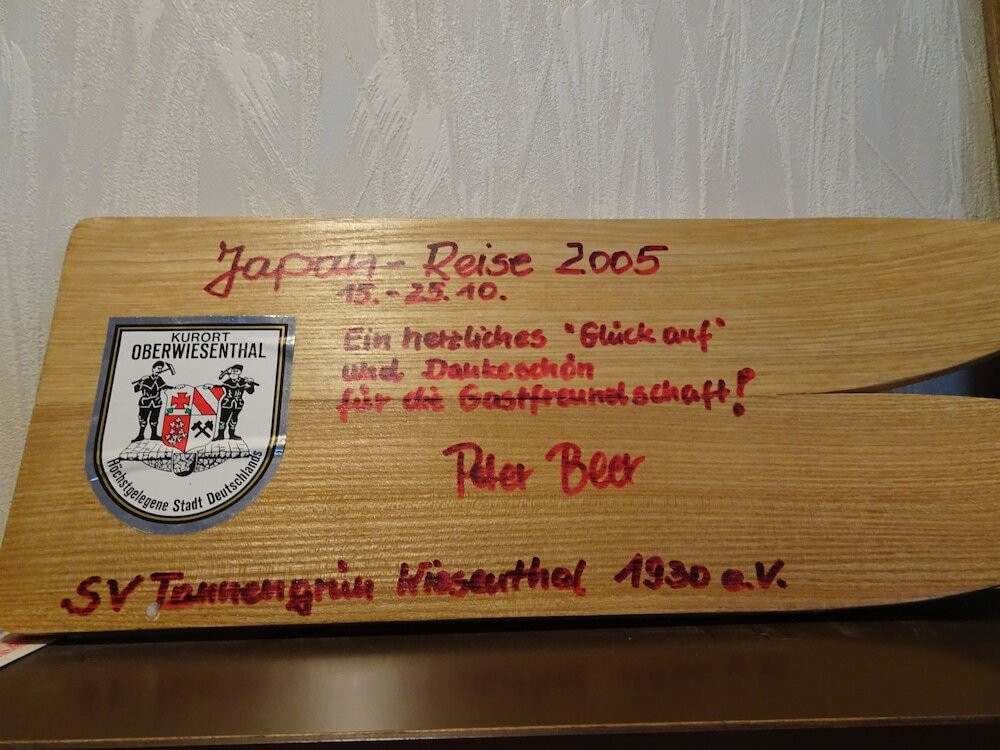 Japan - Reise 2005
15. - 25. 10.
KURORT
OBERWIESENTHAL
Höchstgelegene Stadt Deutschlands
Ein herzliches "Glück auf"
und Dankeschön
für die Gastfreundschaft!
Peter
SV Tannengrün Wiesenthal 1930 e.V.